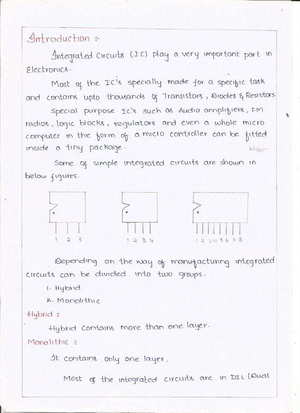 Introduction :-
Integrated Circuits (IC) play a very important part in
Electronics.
Most of the IC's specially made for a specific task
and contains upto thousands of Transistors, Diodes & Resistors
Special purpose IC's such as Audio amplifiers, FM
radios, logic blocks, regulators and even a whole micro
computer in the form of a micro controller can be fitted
inside a tiny package.
Some of simple integrated circuits are shown in
below figures.
1 2 3
1 2 3 4
1 2 3 4 5 6 7 8
Depending on the way of manufacturing integrated
circuits can be divided into two groups.
1. Hybrid
2. Monolithic
Hybrid :
Hybrid contains more than one layer.
Monolithic :
It contains only one layer.
Most of the integrated circuits are in DIL (Dual